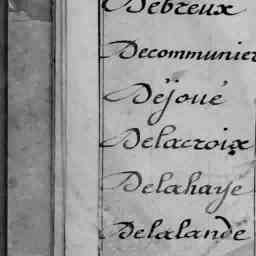 Debreux
Decommunier
Déjoué
Delacroix
Delahaye
Delalande